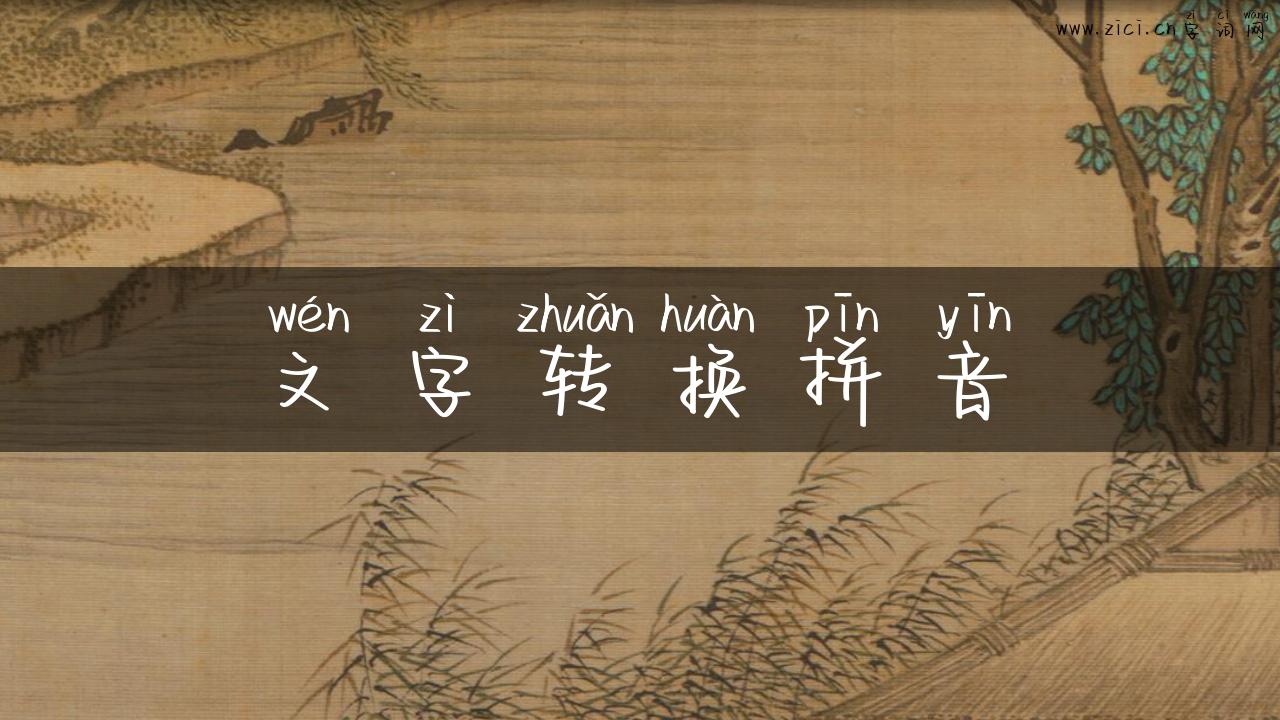 zì cí wǎng
www.zici.cn字词网
wén zì zhuǎn huàn pīn yīn
文字转换拼音